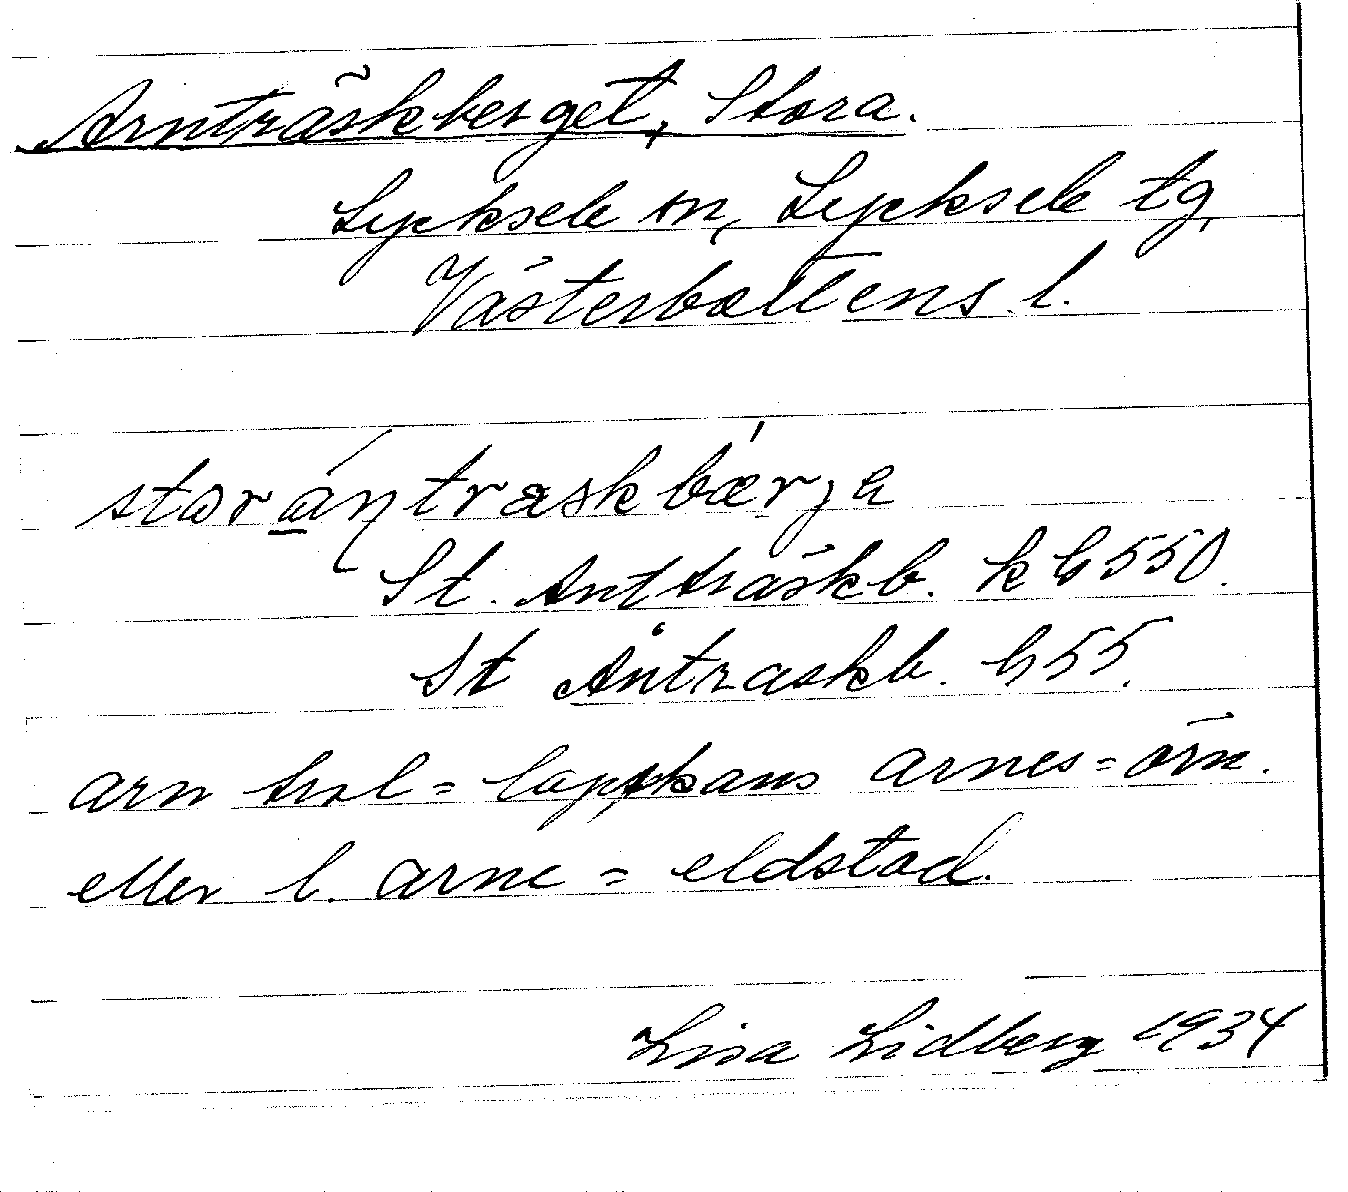 Arnträskberget, Stora.
Lycksele sn, Lycksele tg,
Västerbottens l.
storánträskbærja
St. Antträskb. k G550.
St Åntraskb. G55.
arn trol = lapskans arnes = örn.
eller l. arne = eldstad.
Lisa Lidberg 1934